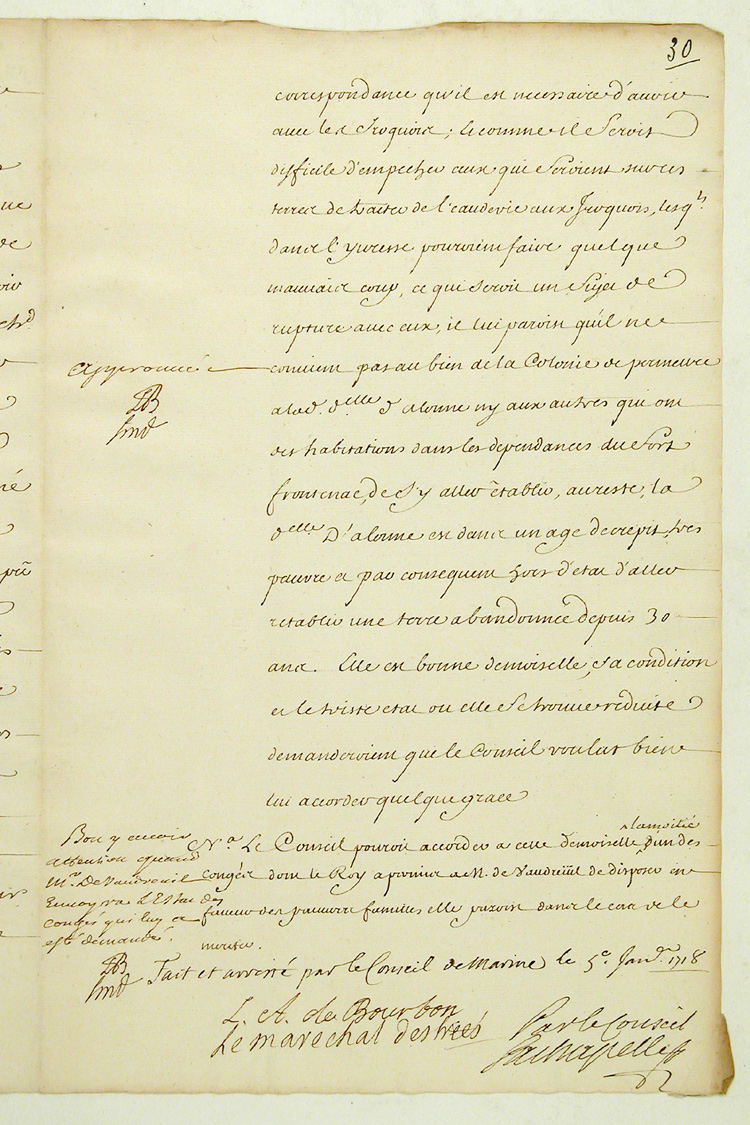 30
correspondance qu'il est necessaire d'avoir
avec les Iroquois; & comme il Seroit
difficile d'empecher ceux qui Seroient sur ces
terres de traiter de l'eaudevie aux Iroquois, lesq.ls
dans l'yvresse pouroient faire quelque
mauvais coup, ce qui Seroit un Sujet de
rupture avec eux, il lui paroist qu'il ne
convient pas au bien de la Colonie de permettre
a lad. d.elle d'alonne ny aux autres qui ont
des habitations dans les dependances du Fort
frontenac, de S'y aller établir, au reste, la
d.elle D'alonne est dans un age decrepit, tres
pauvre et par consequent hors d'etat d'aller
retablir une terre abandonnée depuis 30
ans. Elle est bonne demoiselle, sa condition
et le triste etat ou elle Se trouve reduite
demanderoient que le Conseil voulut bien
lui accorder quelque grace
Approuvé
LB
Bon y avoir
attention quand
M.r De Vaudreuil
Envoyra L'Estat des
congés qui luy a
esté demandé.
LB
N.a Le Conseil pouroit accorder a cette demoiselle la moitié d'un des
congés dont le Roy a permis a M. de Vaudreüil de disposer en
faveur des pauvres familles elle paroist dans le cas de le
meriter.
Fait et arresté par le Conseil de Marine le 5.e Janv.r 1718
L. A. de Bourbon
Le marechal destrées
Par le Conseil
LaChapelle